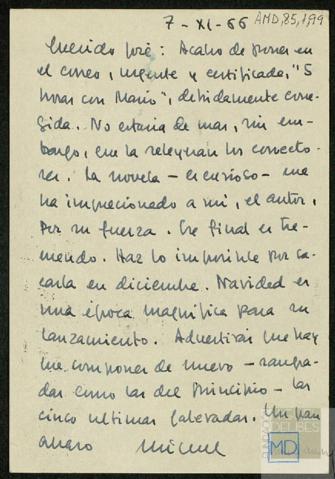 7-XI-66 AMD,85,1,99
Querido José: Acabo de poner en
el correo, urgente y certificada, "5
horas con Mario", debidamente corre-
gida. No estaría de mas, sin em-
bargo, que la releyeran los correcto-
res. La novela - es curioso - me
ha impresionado a mí, el autor,
por su fuerza. Ese final es tre-
mendo. Haz lo imposible por sa-
carla en diciembre. Navidad es
una época magnífica para su
lanzamiento. Advertirás que hay
que componer de nuevo - sangra-
das como las del principio - las
cinco ultimas galeradas. Un gran
abrazo Miguel
FUNDACIÓN
DELIBES
MD